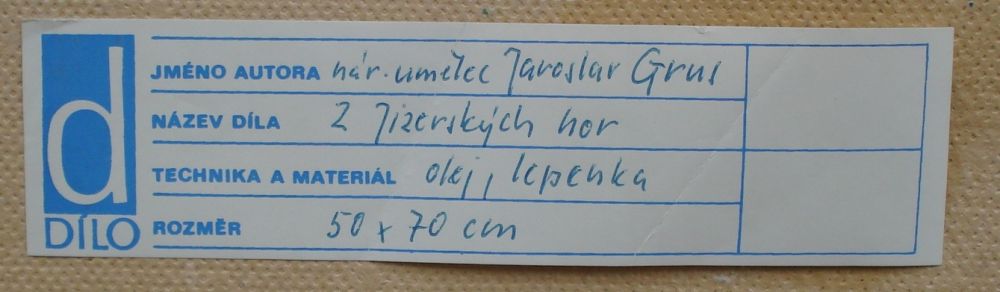 d
DÍLO
JMÉNO AUTORA nár. umělec Jaroslav Grus
NÁZEV DÍLA Z Jizerských hor
TECHNIKA A MATERIÁL olej, lepenka
ROZMĚR 50 x 70 cm